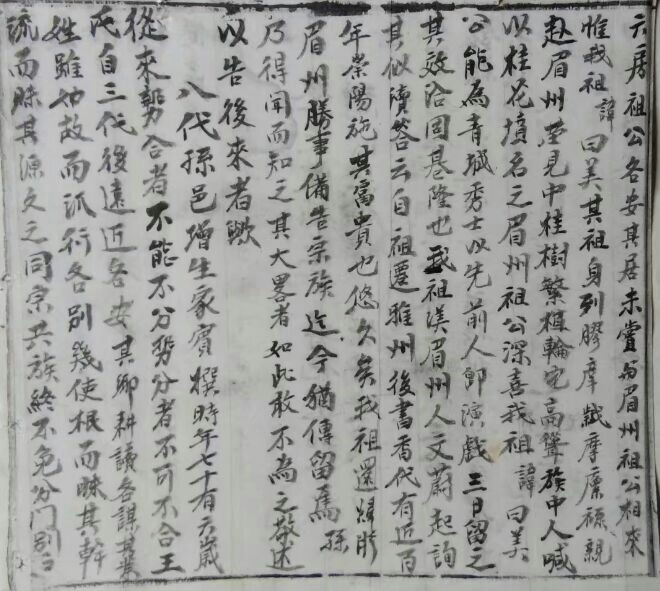 六房祖公各安其居未嘗與眉州祖公相來
惟我祖諱曰美其祖身列膠庠餼摩廩祿親
赴眉州塋見中桂樹繁植輪宅高聳族中人喊
以桂花墳名之眉州祖公深喜我祖諱曰美
公能為青城秀士以先前人即演戲三日留之
其效洽固基隆也我祖漢眉州人文蔚起詢
其似讀答云自祖遷雅州後書香代有近百
年榮陽施其富貴也悠久矣我祖還
眉州勝事備告宗族迄今猶傳留焉孫
乃得聞而知之其大畧者如此敢不為之敬述
以告後來者歟
八代孫邑增生家賓撰時年七十有六歲
從來勢合者不能不分勢分者不可不合王
氏自三代後遠近各安其卯耕讀各謀其業
姓雖如故而派衍各別幾使根而昧其幹
流而昧其源文之同宗共族終不免分門別户